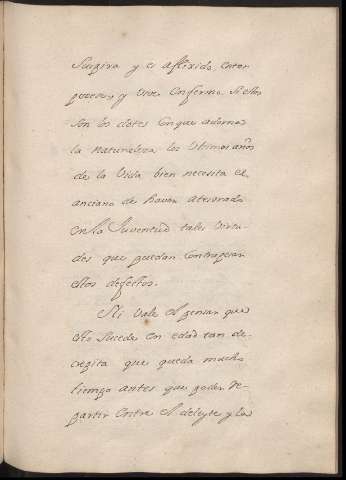 Suspira y es aflixido, entor
pecese, y vive enfermo. Si estos
son los dotes conque adorna
la naturaleza los ultimos años
de la vida bien necesita el
anciano de haver atesorado
en la Juventud tales virtu-
des que puedan contrapesar
estos defectos.
Ni vale el pensar que
esto sucede en edad tan de-
crepita que queda mucho
tiempo antes que poder re-
partir entre el deleyte y la